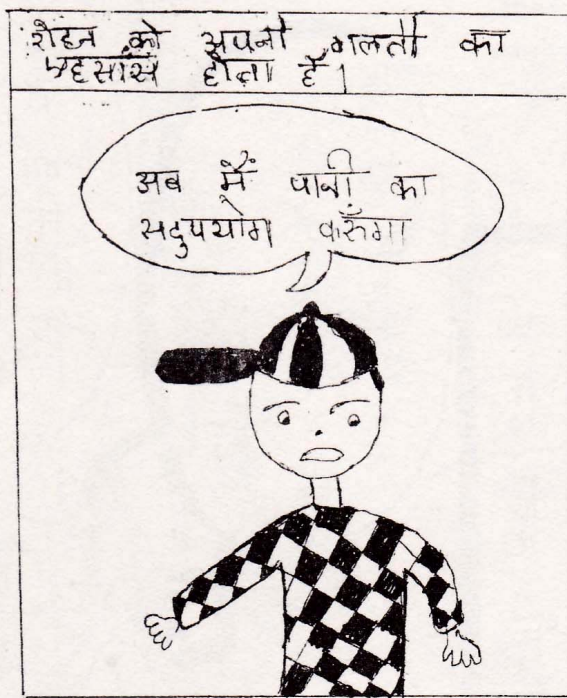 रोहन को अपनी गलती का
एहसास होता है।
अब मैं पानी का
सदुपयोग करूँगा